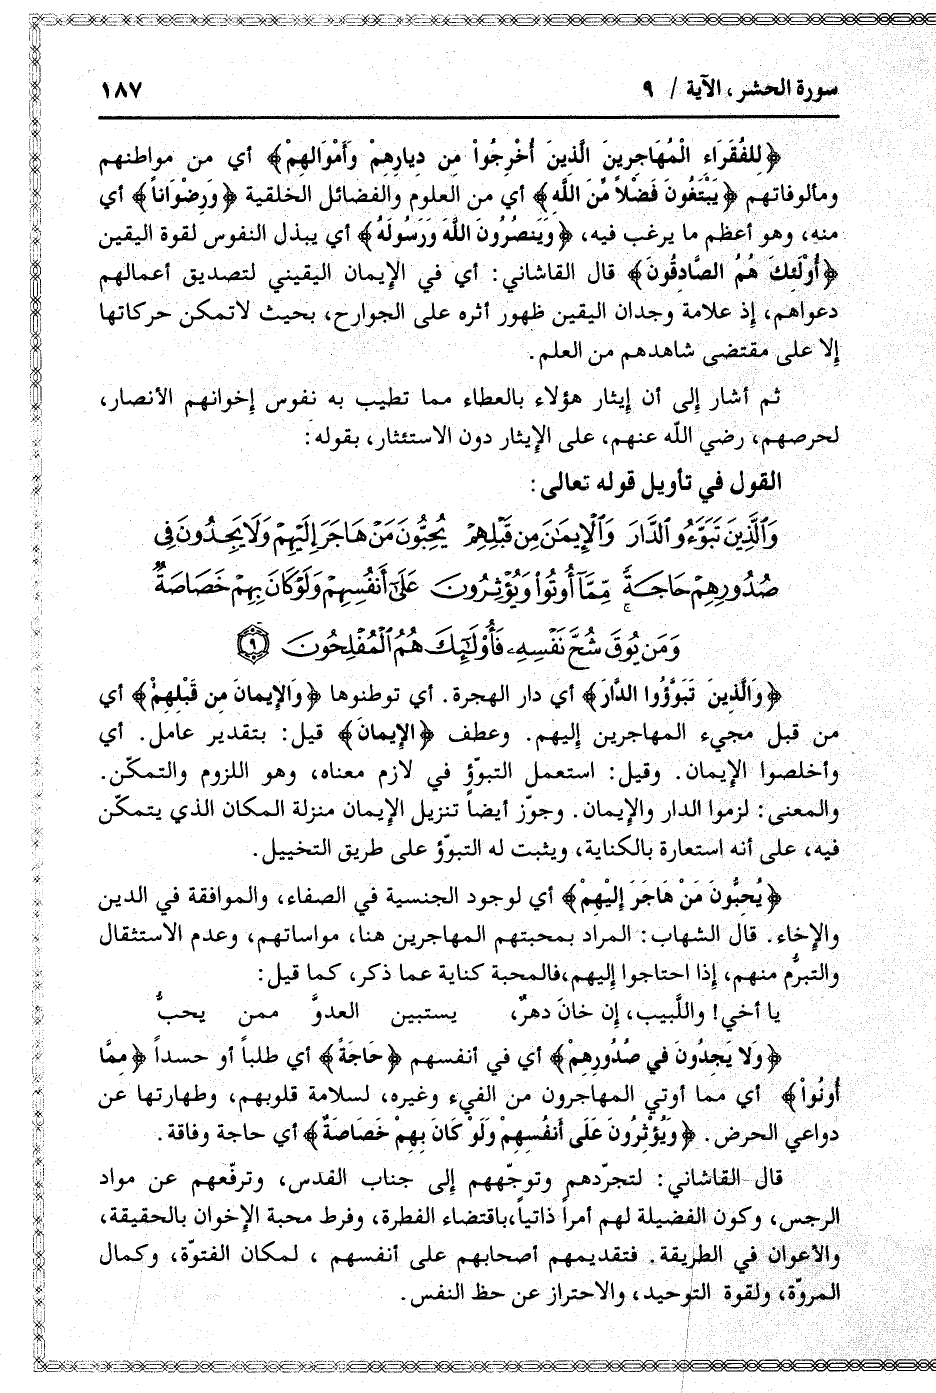 سورة الحشر، الآية / ٩
١٨٧
﴿لِلفُقَرَاء الْمُهَاجِرِينَ الَّذِينَ أُخْرِجُواْ مِن دِيارِهِمْ وَأَمْوَالهِمْ﴾ أي من مواطنهم
ومألوفاتهم ﴿يَبْتَغُونَ فَضْلاً مِّنَ اللَّهِ﴾ أي من العلوم والفضائل الخلقية ﴿وَرِضْوَاناً﴾ أي
منه، وهو أعظم ما يرغب فيه، ﴿وَيَنصُرُونَ اللَّهَ وَرَسُولَهُ﴾ أي يبذل النفوس لقوة اليقين
﴿أُوْلَئِكَ هُمُ الصَّادِقُونَ﴾ قال القاشاني: أي في الإيمان اليقيني لتصديق أعمالهم
دعواهم، إذ علامة وجدان اليقين ظهور أثره على الجوارح، بحيث لاتمكن حركاتها
إلا على مقتضى شاهدهم من العلم.
ثم أشار إلى أن إيثار هؤلاء بالعطاء مما تطيب به نفوس إخوانهم الأنصار،
لحرصهم، رضي اللّه عنهم، على الإيثار دون الاستئثار، بقوله:
القول في تأويل قوله تعالى:
وَٱلَّذِينَ تَبَوَّءُو ٱلدَّارَ وَٱلْإِيمَٰنَ مِن قَبْلِهِمْ يُحِبُّونَ مَنْ هَاجَرَ إِلَيْهِمْ وَلَا يَجِدُونَ فِى
صُدُورِهِمْ حَاجَةً مِّمَّآ أُوتُواْ وَيُؤْثِرُونَ عَلَىٰٓ أَنفُسِهِمْ وَلَوْ كَانَ بِهِمْ خَصَاصَةٌ
وَمَن يُوقَ شُحَّ نَفْسِهِۦ فَأُوْلَٰٓئِكَ هُمُ ٱلْمُفْلِحُونَ ٩
﴿وَالَّذِينَ تَبَوَّؤُوا الدَّارَ﴾ أي دار الهجرة. أي توطنوها ﴿وَالإِيمانَ مِن قَبْلِهِمْ﴾ أي
من قبل مجيء المهاجرين إليهم. وعطف ﴿الإيمانَ﴾ قيل: بتقدير عامل. أي
وأخلصوا الإيمان. وقيل: استعمل التبوّؤ في لازم معناه، وهو اللزوم والتمكّن.
والمعنى: لزموا الدار والإيمان. وجوّز أيضاً تنزيل الإيمان منزلة المكان الذي يتمكّن
فيه، على أنه استعارة بالكناية، ويثبت له التبوّؤ على طريق التخييل.
﴿يُحِبُّونَ مَنْ هَاجَرَ إِلَيْهِمْ﴾ أي لوجود الجنسية في الصفاء، والموافقة في الدين
والإخاء. قال الشهاب: المراد بمحبتهم المهاجرين هنا، مواساتهم، وعدم الاستثقال
والتبرُّم منهم، إذا احتاجوا إليهم،فالمحبة كناية عما ذكر، كما قيل:
يا أخي! واللَّبيب، إن خانَ دهرٌ، يستبين العدوَّ ممن يحبُّ
﴿وَلا يَجِدُونَ في صُدُورِهِمْ﴾ أي في أنفسهم ﴿حَاجَةً﴾ أي طلباً أو حسداً ﴿مِمَّا
أُوتُواْ﴾ أي مما أوتي المهاجرون من الفيء وغيره، لسلامة قلوبهم، وطهارتها عن
دواعي الحرض. ﴿وَيُؤْثِرُونَ عَلَى أَنفُسِهِمْ وَلَوْ كَانَ بِهِمْ خَصَاصَةٌ﴾ أي حاجة وفاقة.
قال القاشاني: لتجرّدهم وتوجّههم إلى جناب القدس، وترفّعهم عن مواد
الرجس، وكون الفضيلة لهم أمراً ذاتياً،باقتضاء الفطرة، وفرط محبة الإخوان بالحقيقة،
والأعوان في الطريقة. فتقديمهم أصحابهم على أنفسهم ، لمكان الفتوّة، وكمال
المروّة، ولقوة التوحيد، والاحتراز عن حظ النفس.